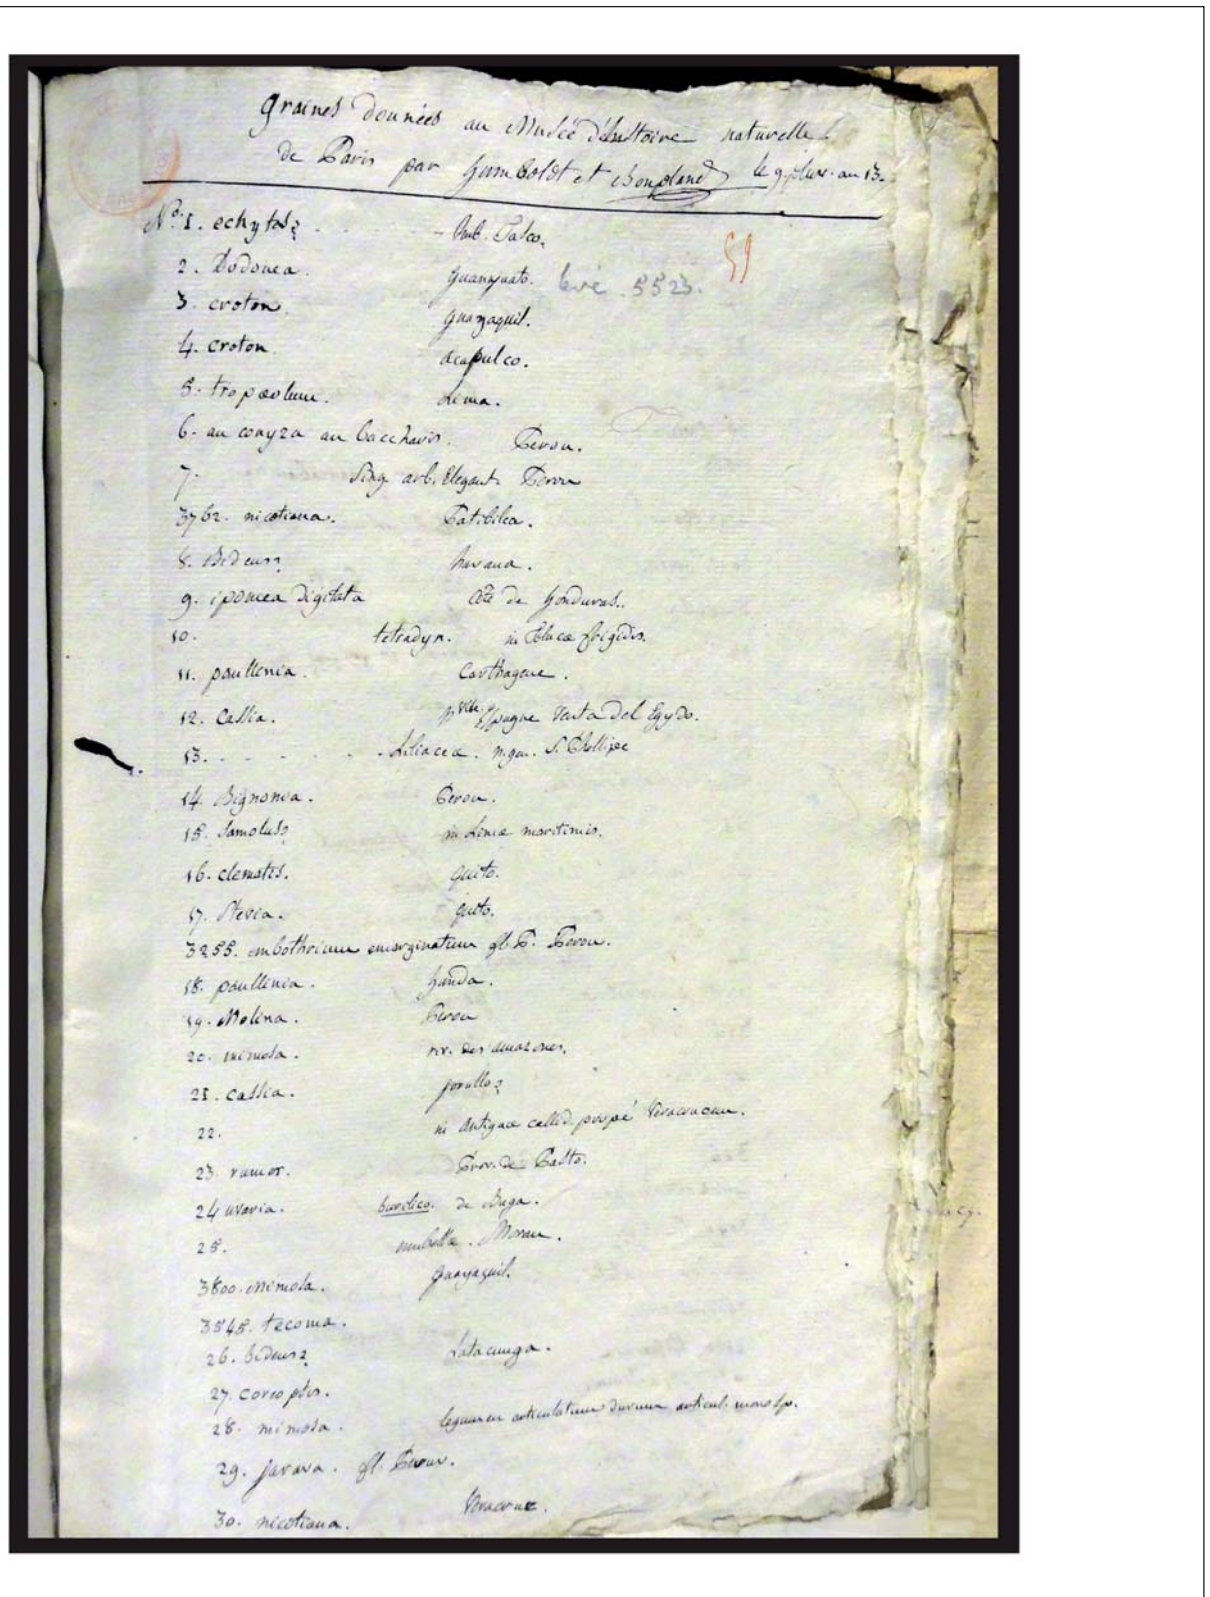 Graines données au Musée d'histoire naturelle
de Paris par humboldt et Bonpland le 9 pluv. an 13.
N.º 1. echytes? - - Imb. Pasco.
59
2. Dodonea. guanaxuato. levé 5523.
3. croton. guayaquil.
4. croton acapulco.
5. tropæolum. Lima.
6. an conyza an bacchavis. Perou.
7. Sing arb. Elegant. Perou
3762. nicotiana. Patibilca.
8. Bidens? havana.
9. ipomea digitata côte de honduras.
10. tetradyn. in Tolucæ frigidis.
11. paullinia. Carthagene.
12. Cassia. nvlle Espagne Venta del Egydo.
13. - - - - Liliacea. n. gen. S. Phellipe
14. Bignonia. Perou.
15. Samolus? in Limæ maritimis.
16. clematis. quito.
17. Stevia. quito.
3255. embothrium emarginatum fl. P. Perou.
18. paullinia. honda.
19. Molina. Perou
20. mimosa. riv. des amazones.
21. cassia. jorullo?
22. in Antiguæ collib. propé Veracrucem.
23. rumex. Prov. de Pasto.
24 uvaria. burilico. de Buga.
25. umbella. Moran.
3800. Mimosa. guayaquil.
3545. tecoma.
26. bidens? Latacunga.
27. coreopsis.
28. mimosa. legumen articulatum durum articul. monosp.
29. jarava. fl. Peruv.
30. nicotiana. Veracruz.